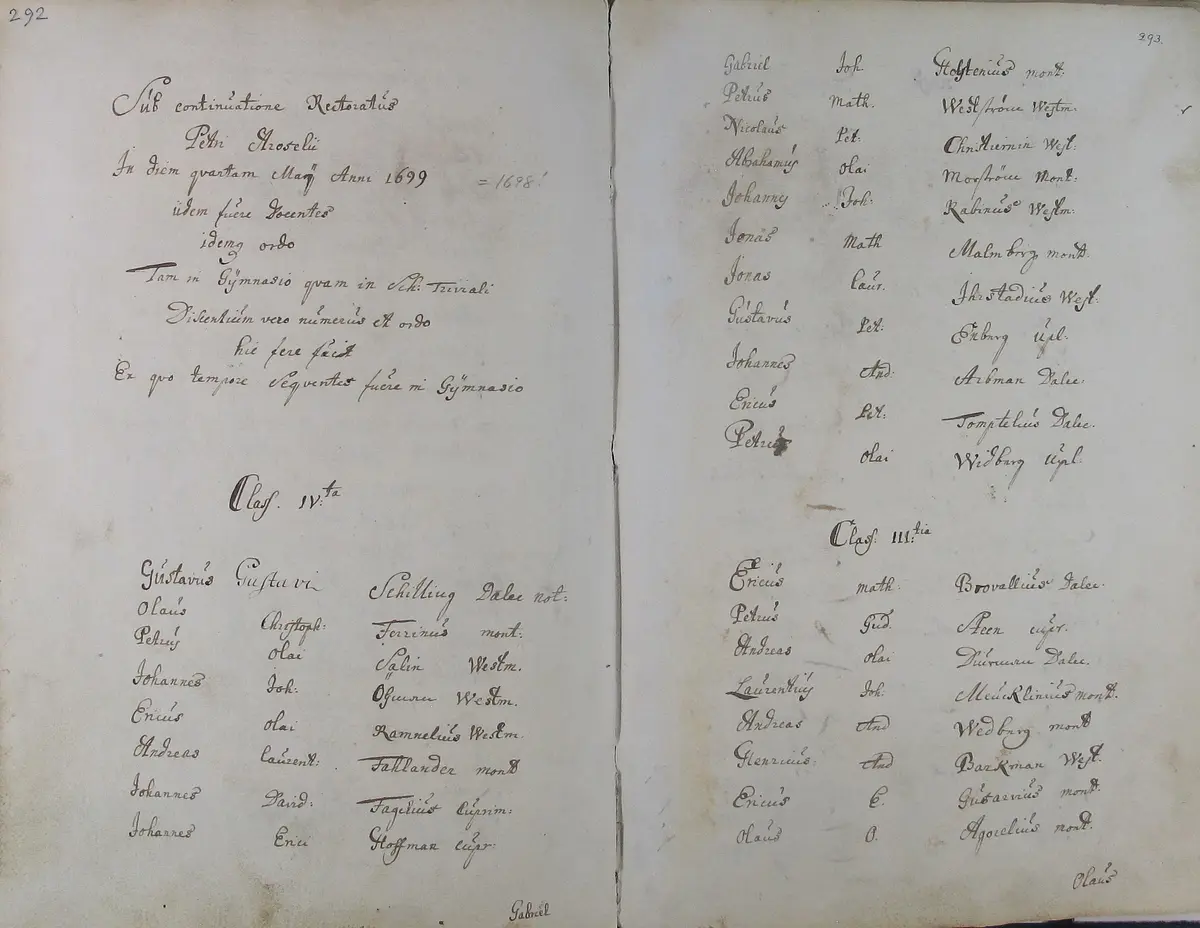 292
Sub continuatione Rectoratus
Petri Aroselii
In diem qvartam Maÿ Anni 1699 = 1698!
iidem fuere Docentes
idemq ordo
Tam in Gÿmnasio qvam in Sch: Triviali
Discentium vero numerus et ordo
hic fere fuit
Ex qvo tempore Seqventes fuere in Gÿmnasio
Class. IV:ta
Gustavus Gustavi Schilling Dalec not:
Olaus Christoph: Ferrinus mont:
Petrus Olai Salin Westm.
Johannes Joh: Westm.
Ericus Olai Ramnelius Westm
Andreas Laurent: Fahlander mont
Johannes David: Fagelius Cuprim:
Johannes Erici Hoffman Cupr:
Gabriel
293.
Gabriel Joh Holstenius mont:
Petrus Math. Westström Westm.
Nicolaus Pet: Christiernin West:
Abrahamus Olai Morström Mont:
Johannes Joh: Rabinus Westm:
Jonas Math Malmberg mont.
Jonas Laur. West:
Gustavus Pet: Enberg Upl.
Johannes And: Arbman Dalec.
Ericus Pet: Tomptelius Dalec.
Petrus Olai Widberg Upl.
Class. III:tia
Ericus Math: Boovallius Dalec.
Petrus Gud. Steen Cupr.
Andreas Olai Duurman Dalec.
Laurentius Joh: Meucklinius mont.
Andreas And Wedberg mont
Henricus And Barkman West.
Ericus E. Gustavius mont.
Olaus O. Agorelius mont.
Olaus